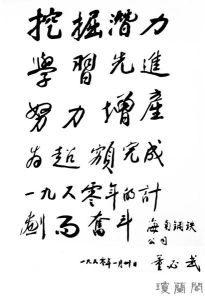 挖掘潛力
學習先進
努力增產
為超額完成
一九六零年的計
劃而奮斗
海南鋼鉄
公司
董必武
一九六〇年一月卅日
瓊蘭閣